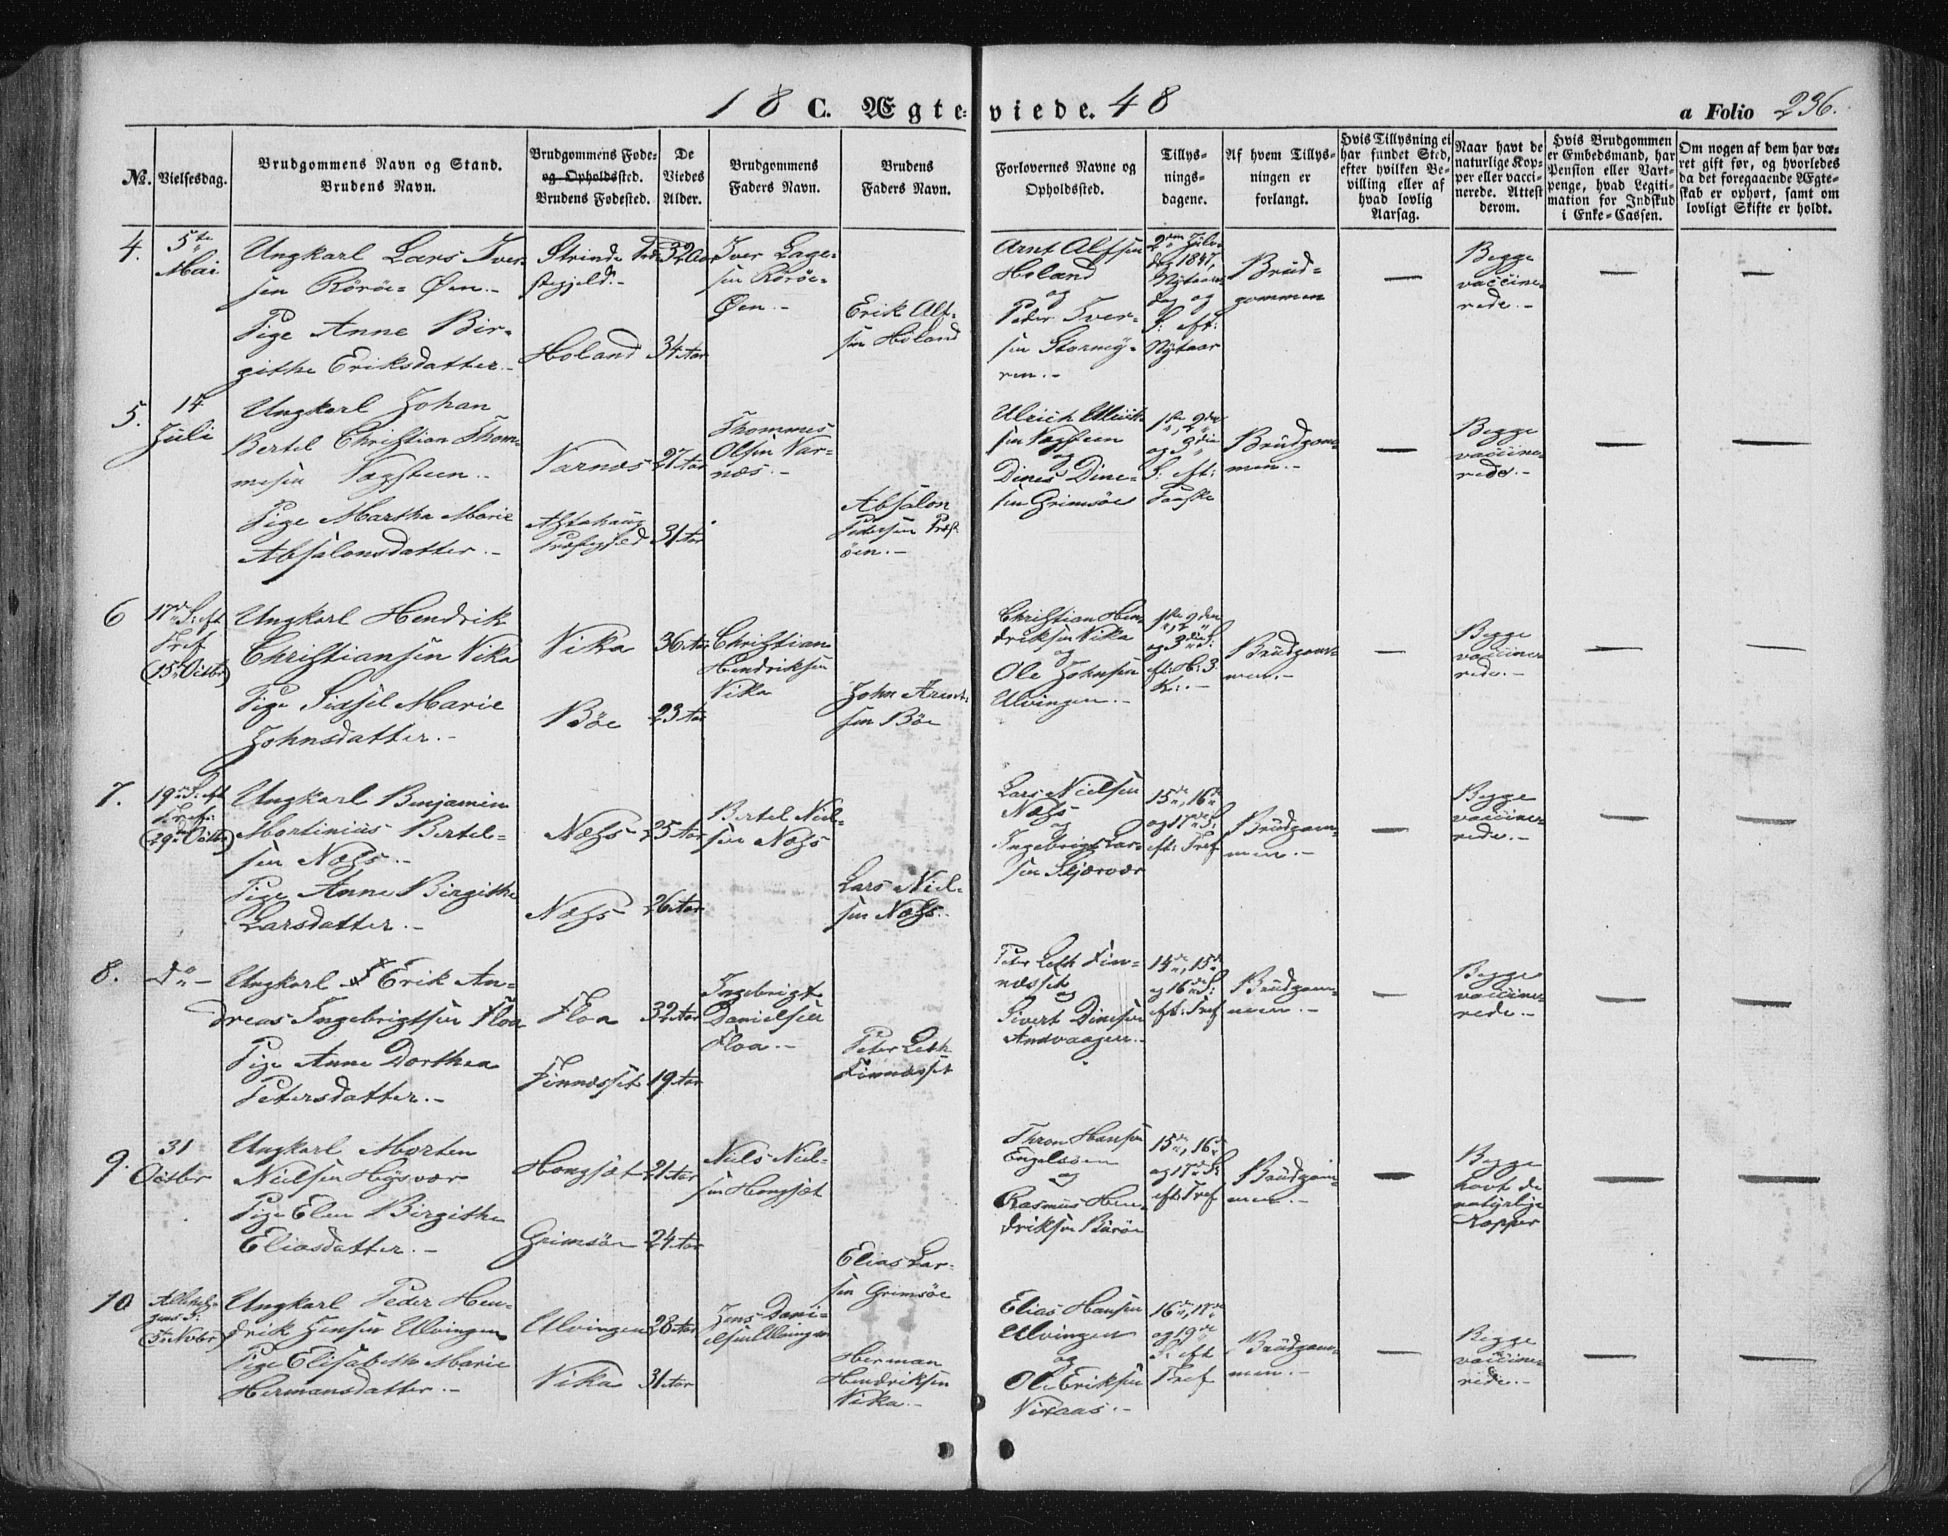 18 C. Ægte-viede. 48
a Folio 236.
No.
Vielsesdag.
Brudgommens Navn og Stand.
Brudens Navn.
Brudgommens Føde-
og Opholdssted.
Brudens Fødested.
De
Viedes
Alder.
Brudgommens
Faders Navn.
Brudens
Faders Navn.
Forlovernes Navne og
Opholdssted.
Tillys-
nings-
dagene.
Af hvem Tillys-
ningen er
forlangt.
Hvis Tillysning ei
har fundet Sted,
efter hvilken Be-
villing eller af
hvad lovlig
Aarsag.
Naar havt de
naturlige Kop-
per eller vacci-
nerede. Attest
derom.
Hvis Brudgommen
er Embedsmand, har
Pension eller Vart-
penge, hvad Legiti-
mation for Indskud
i Enke-Cassen.
Om nogen af dem har væ-
ret gift før, og hvorledes
da det foregaaende Ægte-
skab er ophørt, samt om
lovligt Skifte er holdt.
4.
5te
Mai
Ungkarl Lars Iver-
sen Röröe-Øen.-
Pige Anne Bir-
githe Eriksdatter.-
Strinde Præ-
stegjeld.-
Holand
32 Aar
34 Aar
Iver Lage-
sen Röröe-
Øen.-
Erik Alf-
sen Holand
Arnt Alfsen
Holand
og
Peder Iver-
sen Stormÿ-
ren.-
2den Jule-
dag 1847,
Nytaars-
dag og
S: eft:
Nytaar
Brüd-
gommen
—
Begge
vaccine-
rede.-
—
—
5.
14
Juli
Ungkarl Johan
Bertel Christian Thom-
mesen Vagsteen.-
Pige Martha Marie
Absalonsdatter.-
Varnæs
Alstahaug
Præstegjeld
27 Aar
31 Aar
Thommes
Olsen Var-
næs.-
Absalon
Pedersen Præst-
öen.-
Ulrich Ulrik-
sen Vagsteen
og
Dines Dine-
sen Grimsöe
1ste, 2den
og 3die
S: eft:
Paaske
Brüdgom-
men.-
—
Begge
vaccine-
rede.-
—
—
6
17de S: eft
Tref
(15de Octbr)
Ungkarl Hendrik
Christiansen Vika
Pige Sidsel Marie
Johnsdatter.-
Vika
Böe
36 Aar
23 Aar
Christian
Hendriksen
Vika
John Arent-
sen Böe
Christian Hen-
driksen Vika
og
Ole Johnsen
Ulvingen.-
1ste, 2den
og 3die S:
eft: H: 3
K:.-
Brüdgom-
men.-
—
Begge
vaccine-
rede.-
—
—
7.
19de S: eft
Tref:
(29de Octbr)
Ungkarl Benjamin
Mortinius Bertel-
sen Næss.-
Pige Anne Birgithe
Larsdatter.-
Næss
Næss
25 Aar
26 Aar
Bertel Niel-
sen Næss
Lars Niel-
sen Næss.-
Lars Nielsen
Næss
og
Ingebrigt Lar-
sen Skjærvær
15de, 16de
og 17de S:
eft: Tref
Brüdgom-
men.-
—
Begge
vaccine-
rede.-
—
—
8.
Do -
Ungkarl Erik An-
dreas Ingebrigtsen Floa
Pige Anne Dorthea
Petersdatter.-
Floa
Finnæsset
32 Aar
19 Aar
Ingebrigt
Danielsen
Floa.-
Peter Leth
Finnæsset
Peter Leth Fin-
næsset
og
Sivert Dinesen
Andvaagen.-
14de, 15de
og 16de S:
eft: Tref
Brüdgom-
men.-
—
Begge
vaccine-
rede.-
—
—
9.
31
Octbr
Ungkarl Morten
Nielsen Högsvær
Pige Elen Birgithe
Eliasdatter.-
Hongsæt
Grimsöen
21 Aar
24 Aar
Niels Niel-
sen Hongsæt
Elias Lar-
sen Grimsöe
Thron Hansen
Engelsöen
og
Rasmus Hen-
driksen Buröe
15de, 16de
og 17de S:
eft: Tref
Brüdgom-
men.-
—
Begge
havt de
natürlige
Kopper
—
—
10
Allehel-
gens S:
(5te Novbr)
Ungkarl Peder Hen-
drik Jensen Ulvingen
Pige Elisabeth Marie
Hermansdatter.-
Ulvingen
Vika
28 Aar
31 Aar
Jens Dani-
elsen Ulvingen
Herman
Hendriksen
Vika.-
Elias Hansen
Ulvingen
og
Ole Eriksen
Vixaas.-
16de, 17de
og 19de
S: eft
Tref
Brüdgom-
men.-
—
Begge
vaccine-
rede.-
—
—